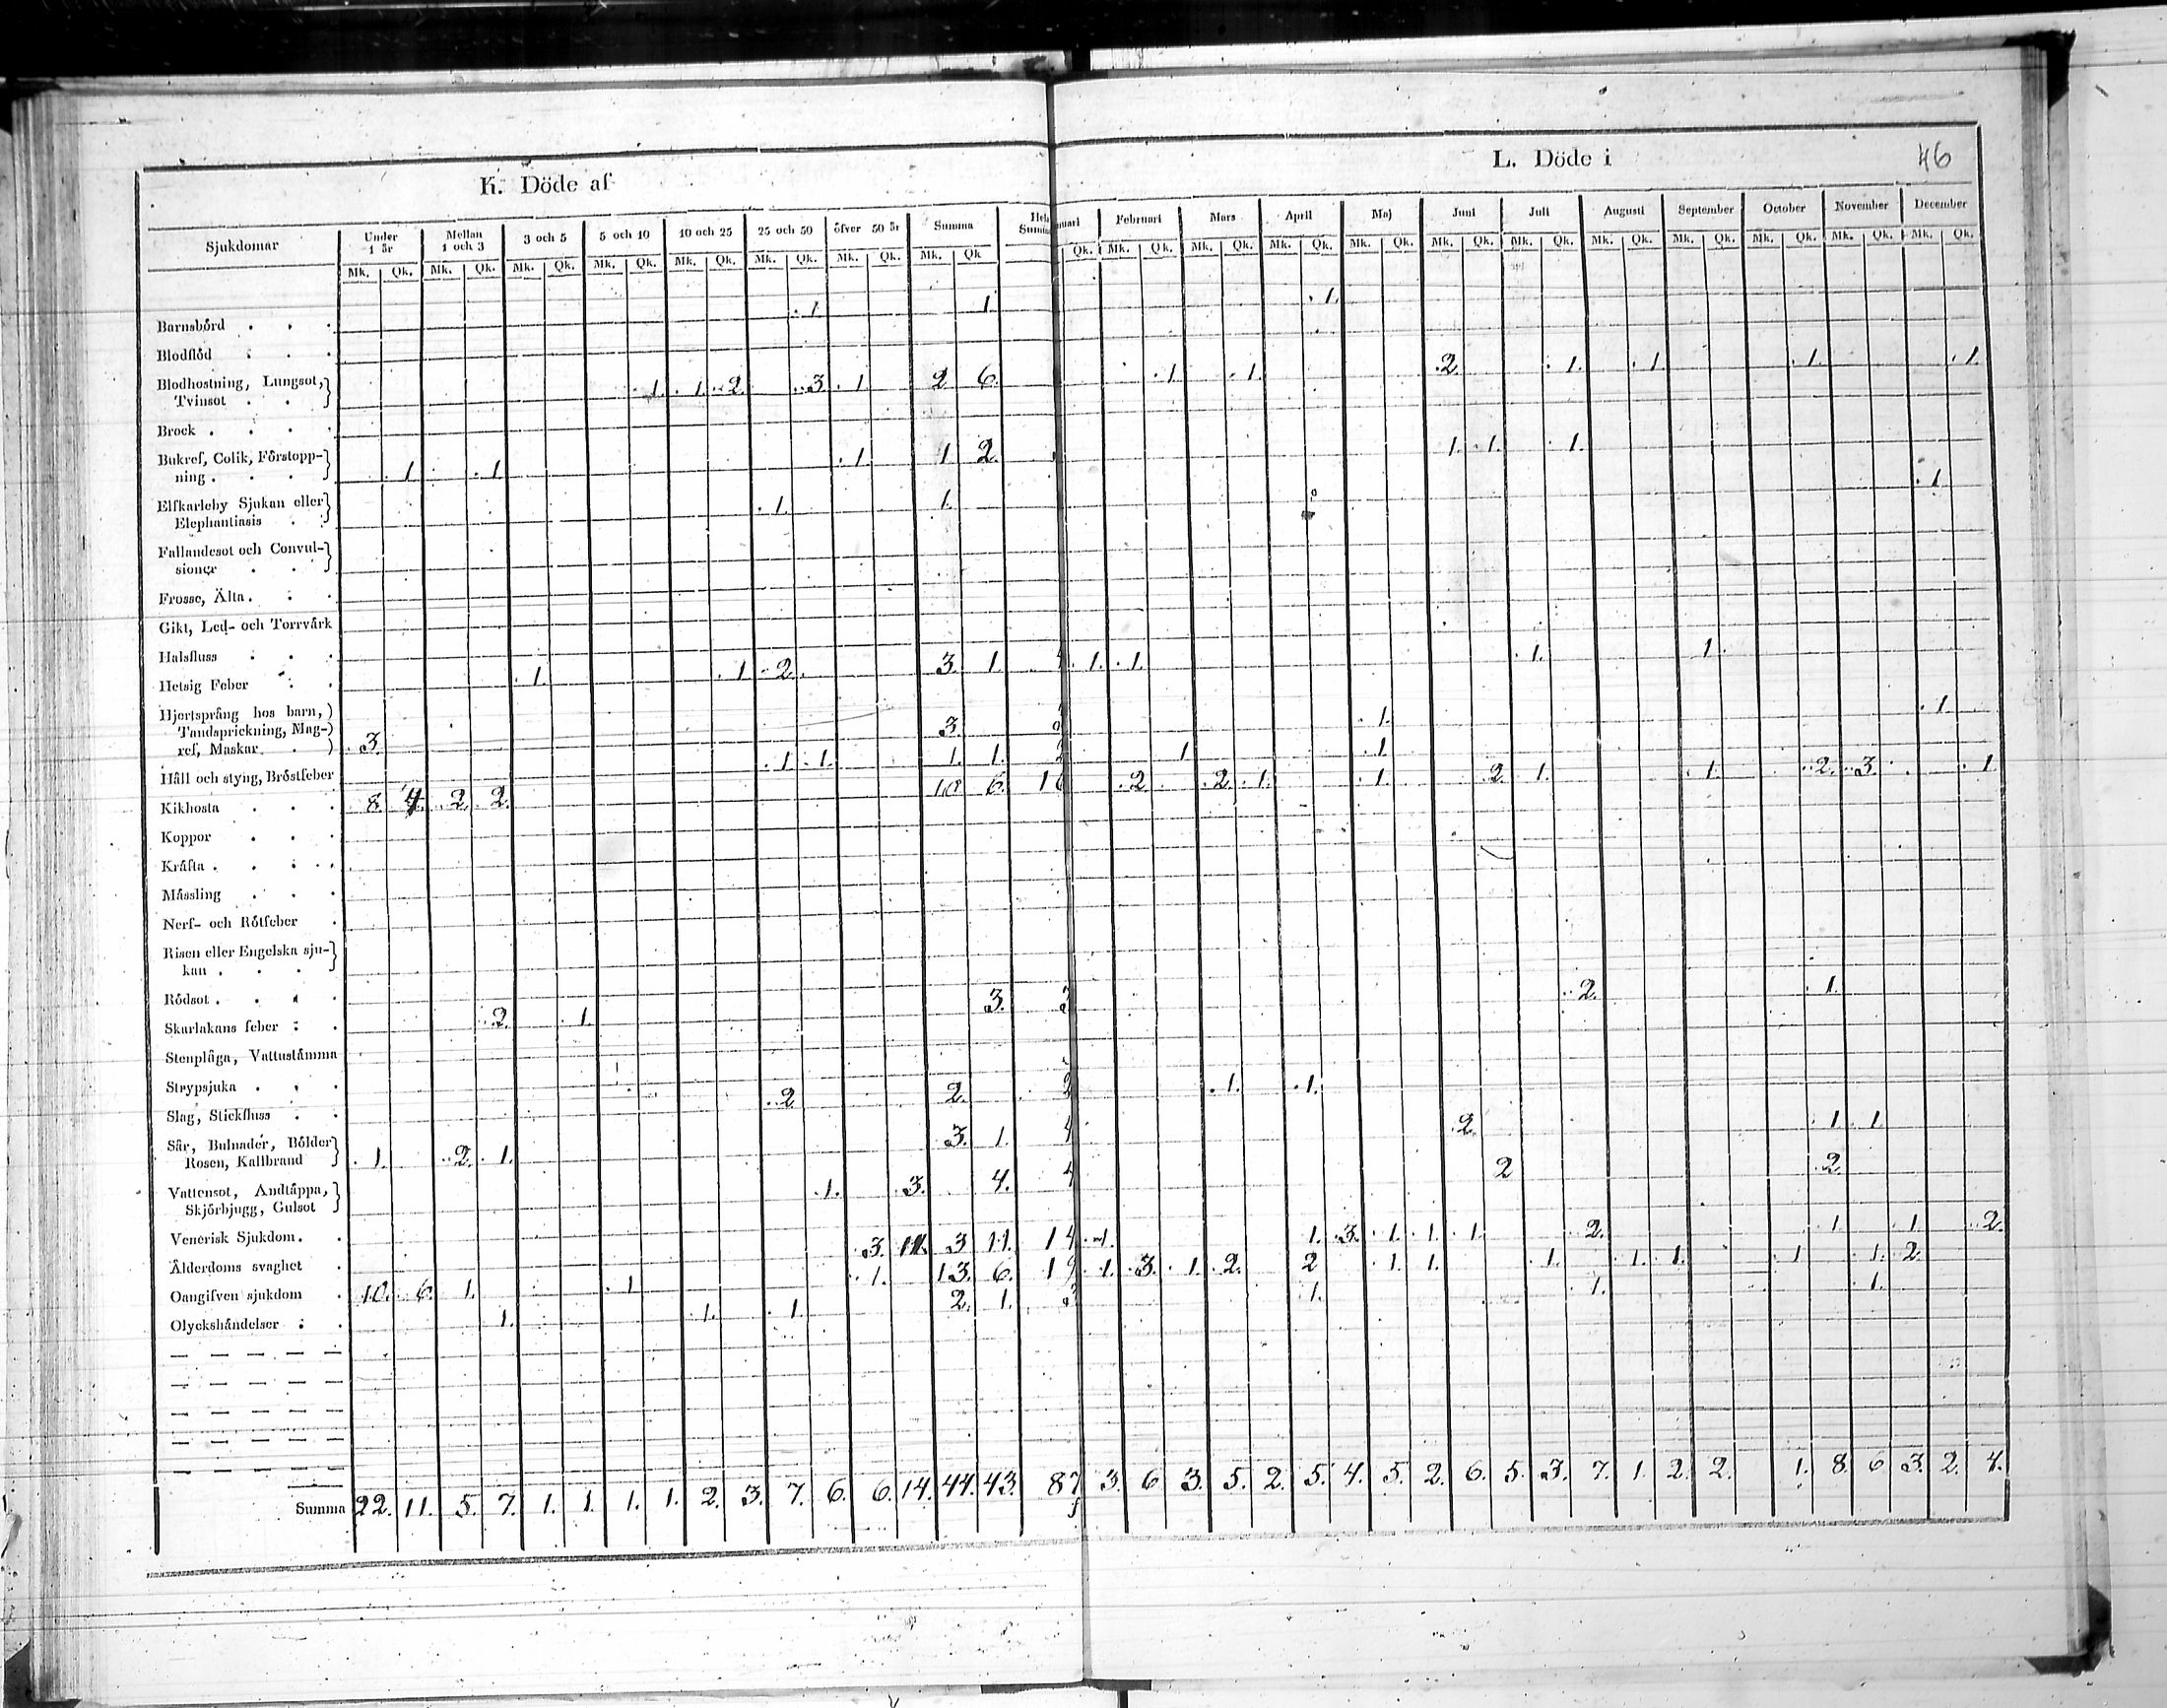 46
K. Döde af
L. Döde i
Sjukdomar Under 1 år Mellan 1 och 3 3 och 5 5 och 10 10 och 25 25 och 50 öfver 50 år Summa Hela Summa
nuari Februari Mars April Maj Juni Juli Augusti September October November December
Mk. Qk. Mk. Qk. Mk. Qk. Mk. Qk. Mk. Qk. Mk. Qk. Mk. Qk. Mk. Qk
Qk. Mk. Qk. Mk. Qk. Mk. Qk. Mk. Qk. Mk. Qk. Mk. Qk. Mk. Qk. Mk. Qk. Mk. Qk. Mk. Qk. Mk. Qk.
Barnsbörd . . . 1. 1. 1.
Blodflöd . . .
Blodhostning, Lungsot,
Tvinsot . . 1. 1. 2. 3. 1. 2 6. 1. 1. 2. 1. 1. 1. 1.
Brock . . . .
Bukref, Colik, Förstopp-
ning . . . 1. 1. 1. 1 2. 1. 1. 1.
Elfkarleby Sjukan eller
Elephantiasis . . 1. 1. 1.
Fallandesot och Convul-
sioner . .
Frosse, Älta . . .
Gikt, Led- och Torrvärk
Halsfluss . . .
Hetsig Feber . . 1. 1 2. 3. 1. 1. 1. 1. 1.
Hjertsprång hos barn,
Tandsprickning, Mag-
ref, Maskar . . 3. 3. 1. 1.
Håll och styng, Bröstfeber 1. 1. 1. 1. 2 1 1.
Kikhosta . . . 8. 4. 2. 2. 10 6. 16 2. 2. 1. 1. 2. 1. 1. 2. 3. 1.
Koppor . . .
Kräfta . . . .
Mässling . . .
Nerf- och Rötfeber .
Risen eller Engelska sju-
kan . . .
Rödsot . . . .
Skarlakans feber . . 2. 1. 3. 3 2. 1.
Stenplåga, Vattustämma
Strypsjuka . . .
Slag, Stickfluss . . 2. 2. 2 1. 1.
Sår, Bulnader, Bölder
Rosen, Kallbrand 1. 2. 1. 3. 1. 4 2. 1 1.
Vattensot, Andtäppa,
Skjörbjugg, Gulsot 1. 3. 4. 4 2 2.
Venerisk Sjukdom . .
Ålderdoms svaghet . 3. 11. 3 11. 14 1. 1. 3. 1. 1. 1. 2. 1. 1. 2.
Oangifven sjukdom . 10. 6. 1. 1 1. 13. 6. 19 1. 3. 1. 2. 2 1. 1. 1. 1. 1. 1 1. 2.
Olyckshändelser . . 1. 1. 1. 2. 1. 3 1. 1. 1.
— — — — —
— — — — —
— — — — —
— — — — —
— — — — —
Summa 22. 11. 5. 7. 1. 1. 1. 1. 2. 3. 7. 6. 6. 14. 44. 43. 87 3. 6. 3. 5. 2. 5. 4. 5. 2. 6. 5. 3. 7. 1. 2. 2. 1. 8. 6 3. 2. 4.